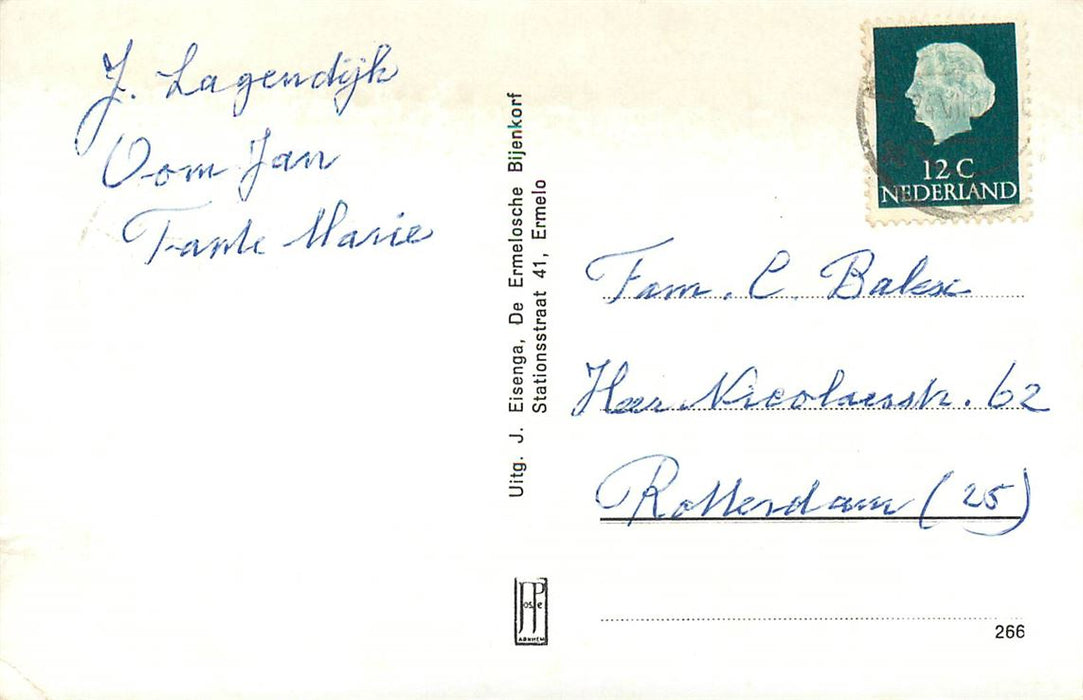 J. Lagendijk
Oom Jan
Tante Marie
Uitg. J. Eisenga, De Ermelosche Bijenkorf
Stationsstraat 41, Ermelo
12 C
NEDERLAND
Fam. C. Balex
Heer Nicolaasstr. 62
Rotterdam (25)
JosPe
ARNHEM
266